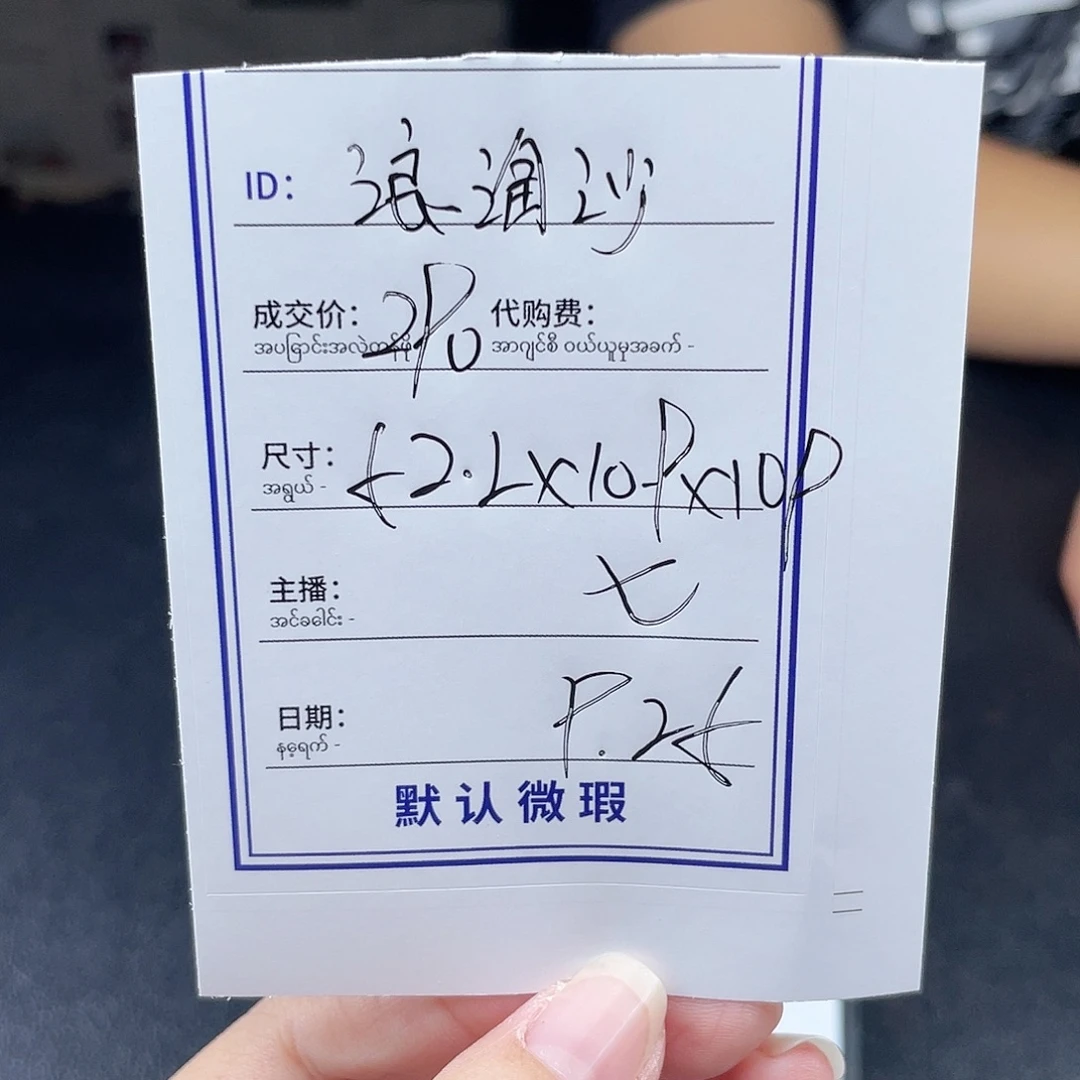 ID: 浪淘沙
成交价: 280 代购费:
အာဂျင်စီ ဝယ်ယူမှုအခက် -
尺寸: 52.2x10.8x10.8
အရွယ် -
主播: 七
အင်ခေါင်း -
日期: 8.25
နေ့ရက် -
默认微瑕